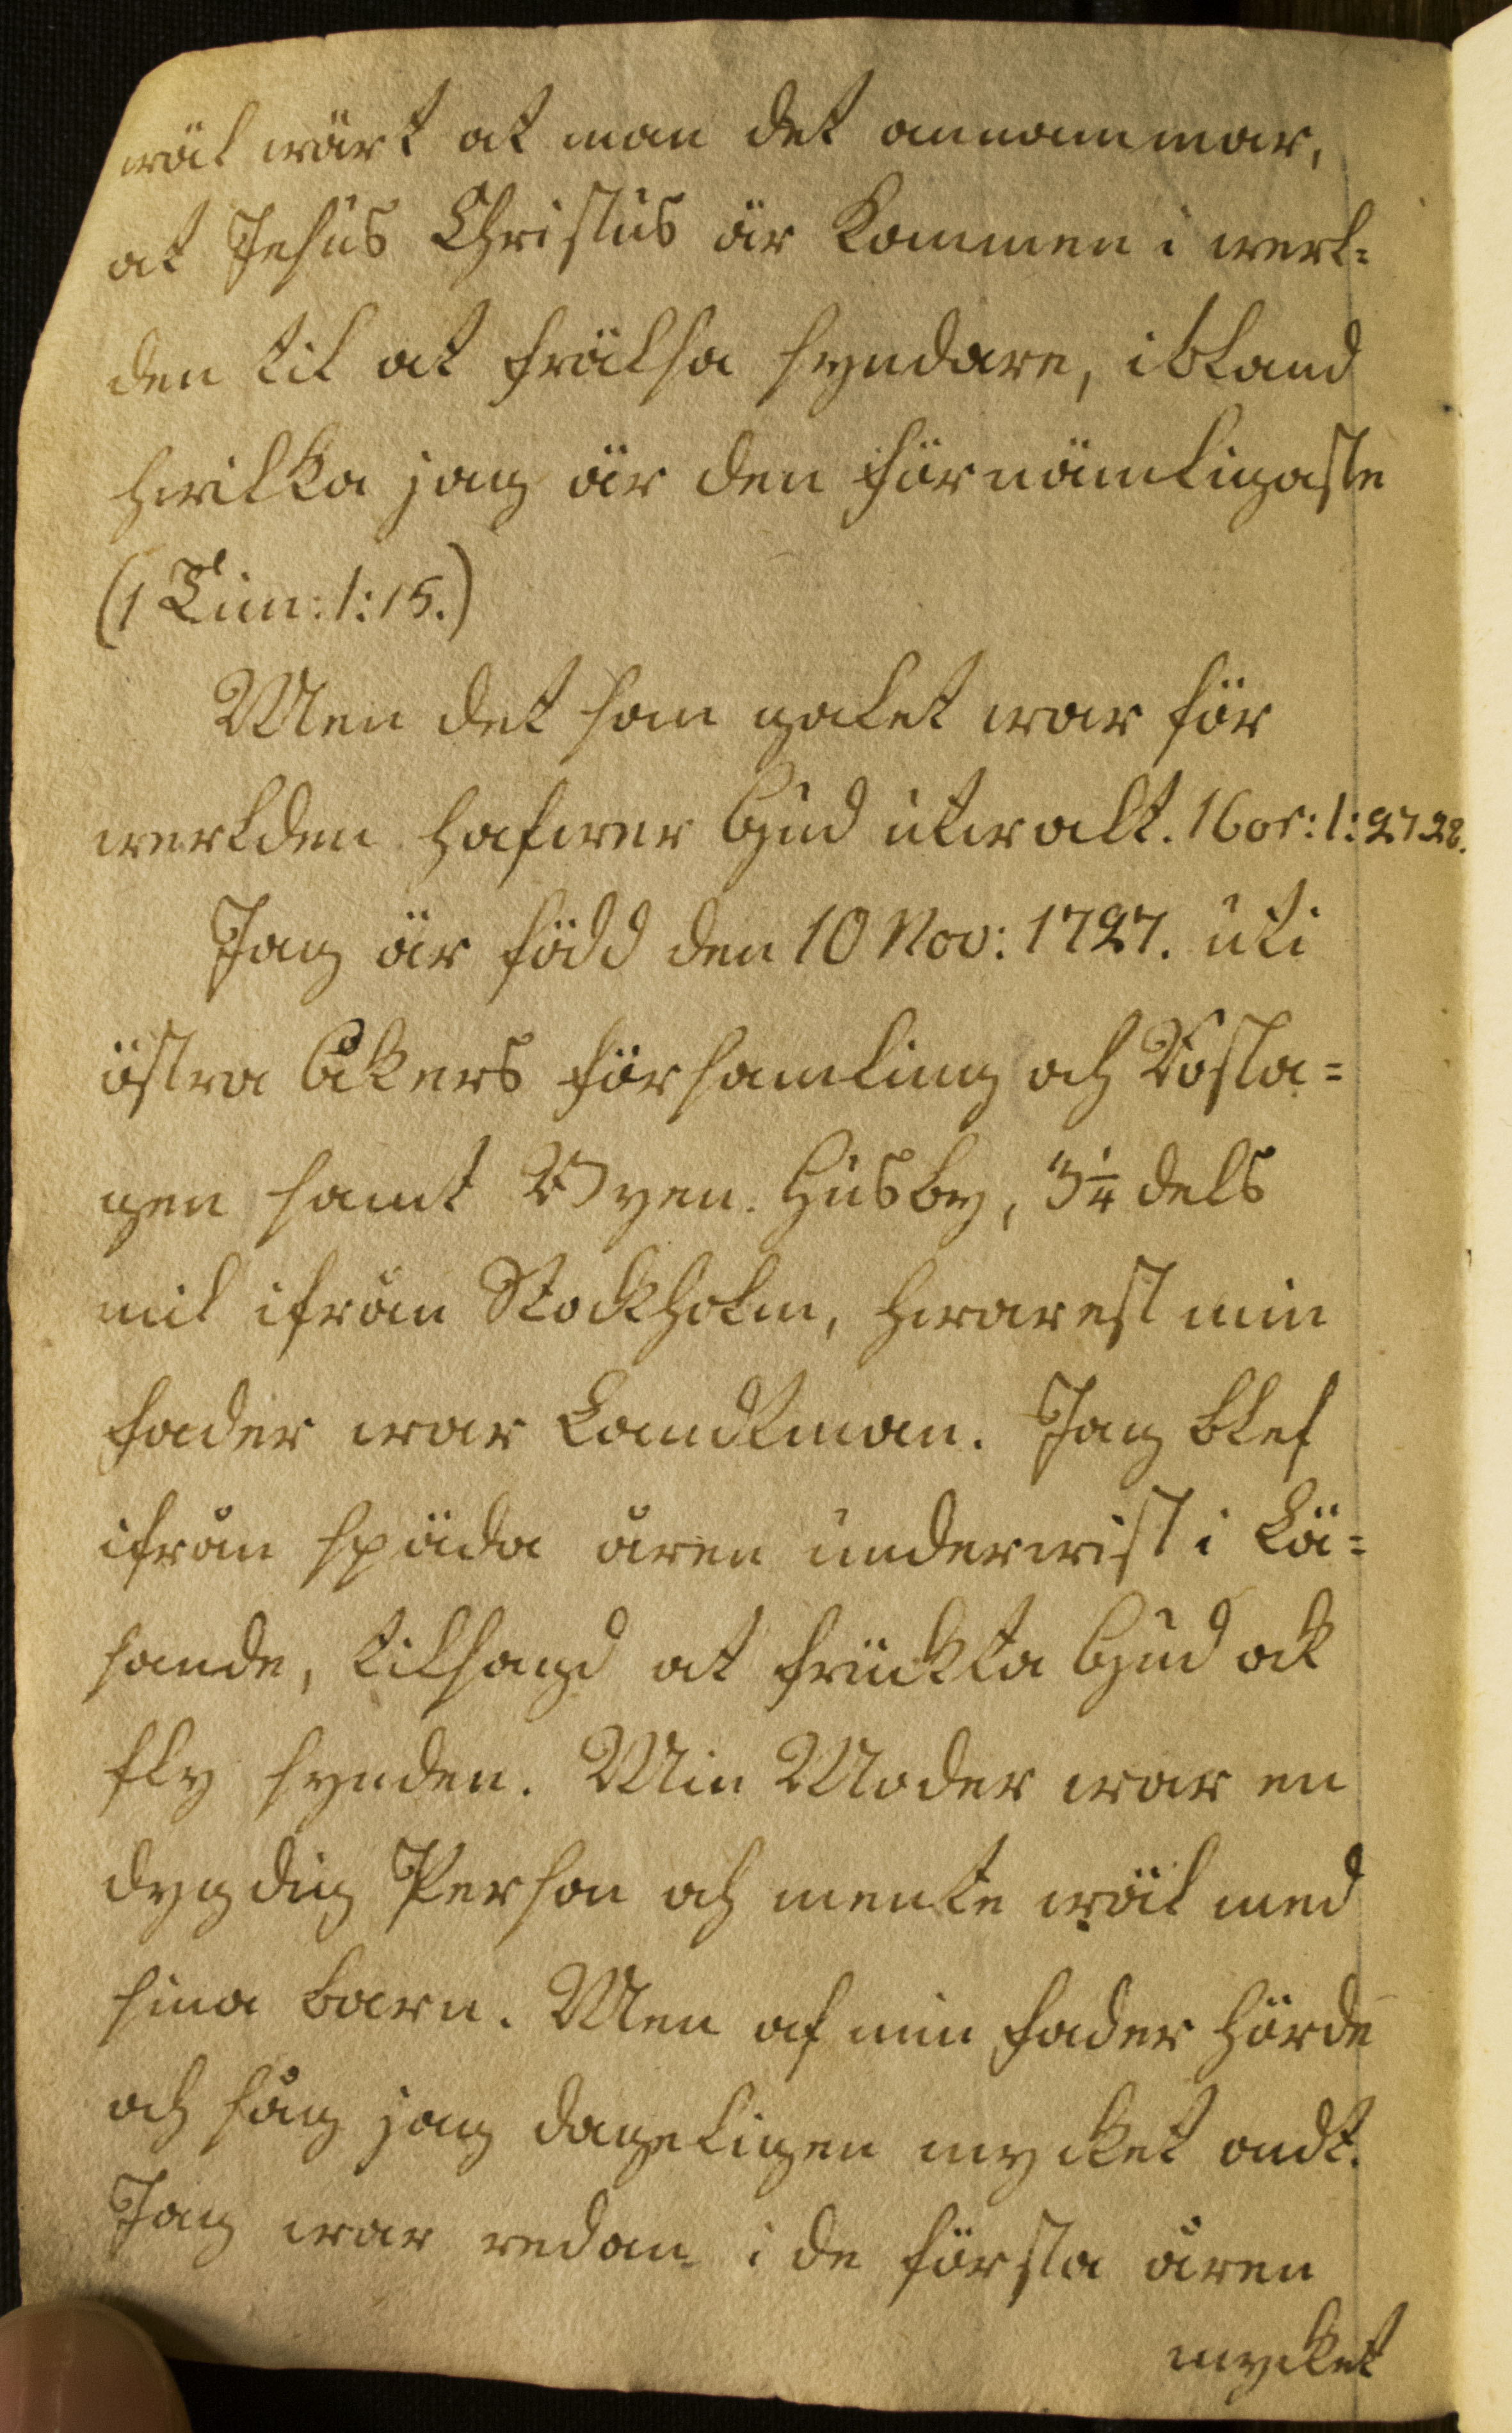 wäl wärt at man det annammar,
at Jesus Christus är kommen i werl=
den til at frälsa syndare, ibland
hwilka jag är den förnämligaste
(1 Tim: 1: 15.)
Men det som galet war för
werlden hafwer Gud utwalt. 1 Cor: 1: 27.28.
Jag är född den 10 Nov: 1727. uti
östra Åkers församling och Rosla=
gen samt Byen Husby, 3 1/4 dels
mil ifrån Stockholm, hwarest min
fader war Landtman. Jag blef
ifrån späda åren underwist i Lä=
sande, tilsagd at fruckta Gud ock
fly synden. Min Moder war en
dygdig Person och mente wäl med
sina barn. Men af min fader hörde
och såg jag dageligen mycket ondt.
Jag war redan i de första åren
mycket